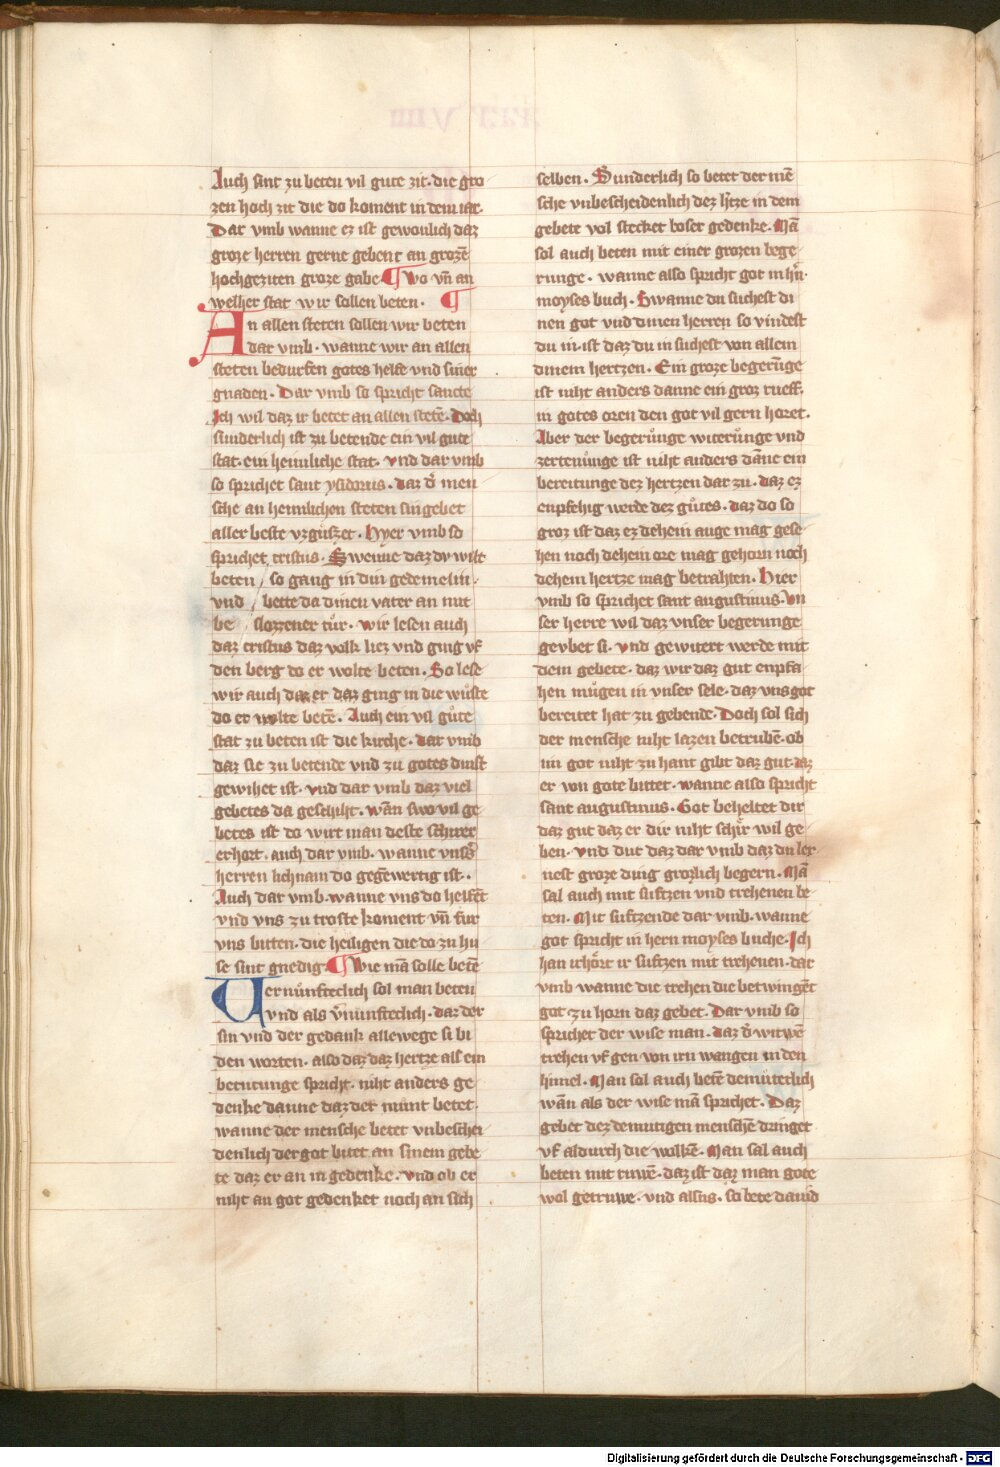 Auch sint zu beten vil gute zit. die gro
zen hoch zit die do koment in dem iar.
Dar vmb wanne ez ist gewonlich daz
groze herren gerne gebent an grozē
hochgeziten groze gabe ¶ Wo vn̄ an
welher stat wir sollen beten. ¶
An allen steten sollen wir beten
dar vmb. wanne wir an allen
steten bedurfen gotes helfe vnd siner
gnaden. Dar vmb so spricht sancte
Ich wil daz ir betet an allen stetē. Doch
sunderlich ist zu betende ein vil gute
stat. ein heimliche stat. vnd dar vmb
so sprichet sant ysidorus. daz d' men
sche an heimlichen steten sin gebet
aller beste vzguszet. Hyer vmb so
sprichet cristus. Swenne daz dv wilt
beten / so gang in din gedemelin.
vnd / bette da dinen vater an mit
be / slozzener tůr. wir lesen auch
daz cristus daz volk liez vnd ging vf
den berg do er wolte beten. So lese
wir auch daz er daz ging in die wůste
do er wolte betē. Auch ein vil gůte
stat zu beten ist die kirche. dar vmb
daz sie zu betende vnd zu gotes dinst
gewihet ist. vnd dar vmb daz viel
gebetes da geschiht. wān swo vil ge
betes ist do wirt man deste schirer
erhort. auch dar vmb. wanne vnſs
herren lichnam do gegēwertig ist.
Auch dar vmb. wanne vns do helfēt
vnd vns zu troste koment vn̄ fur
vns bitten. die heiligen die do zu hu
se sint gnedig. ¶ Wie mā solle betē
Vernůnfteclich sol man beten
vnd als v'nunfteclich. daz der
sin vnd der gedank allewege si bi
den worten. also daz daz hertze als ein
betutunge spricht. niht anders ge
denke danne daz der munt betet.
wanne der mensche betet vnbeschei
denlich der got bitet an sinem gebe
te daz er an in gedenke. vnd ob er
niht an got gedenket noch an sich
selben. Sunderlich so betet der mē
sche vnbescheidenlich dez h'tze in dem
gebete vol stecket boser gedenke. Mā
sol auch beten mit einer grozen bege
runge. wanne also spricht got in h'n
moyses buch. Swanne du suchest di
nen got vnd dinen herren so vindest
du in. ist daz du in suchest von allem
dinem hertzen. Ein groze begerūge
ist niht anders danne ein groz rueff.
in gotes oren den got vil gern horet.
Aber der begerůnge witerůnge vnd
zertenůnge ist niht anders dāne ein
bereitunge dez hertzen dar zu. daz ez
enpfehig werde dez gůtes. daz do so
groz ist daz ez dehein auge mag gese
hen noch dehein ore mag gehorn noch
dehein hertze mag betrahten. Hier
vmb so sprichet sant augustinus. Vn
ser herre wil daz vnser begerunge
gevbet si. vnd gewitert werde mit
dem gebete. daz wir daz gut enpfa
hen můgen in vnser sele. daz vns got
bereitet hat zu gebende. Doch sol sich
der mensche niht lazen betrubē. ob
im got niht zu hant gibt daz gut. daz
er von gote bittet. wanne also spricht
sant augustinus. Got beheltet dir
daz gut daz er dir niht schir wil ge
ben. vnd dut daz dar vmb daz du ler
nest groze ding grozlich begern. Mā
sal auch mit suftzen vnd trehenen be
ten. Mit suftzende dar vmb. wanne
got spricht in hern moyses buche. Ich
han irhôrt ir suftzen mit trehenen. dar
vmb wanne die trehen die betwingēt
got zu horn daz gebet. Dar vmb so
sprichet der wise man. daz d' witwē
trehen vf gen von irn wangen in den
himel. Man sol auch betē demůterlich
wān als der wise mā sprichet. Daz
gebet dez demutigen menschē dringet
vf aldurch die wolkē. Man sal auch
beten mit truwē. daz ist daz man gote
wol getruwe. vnd alsus. so bete dauid
Digitalisierung gefördert durch die Deutsche Forschungsgemeinschaft - DFG